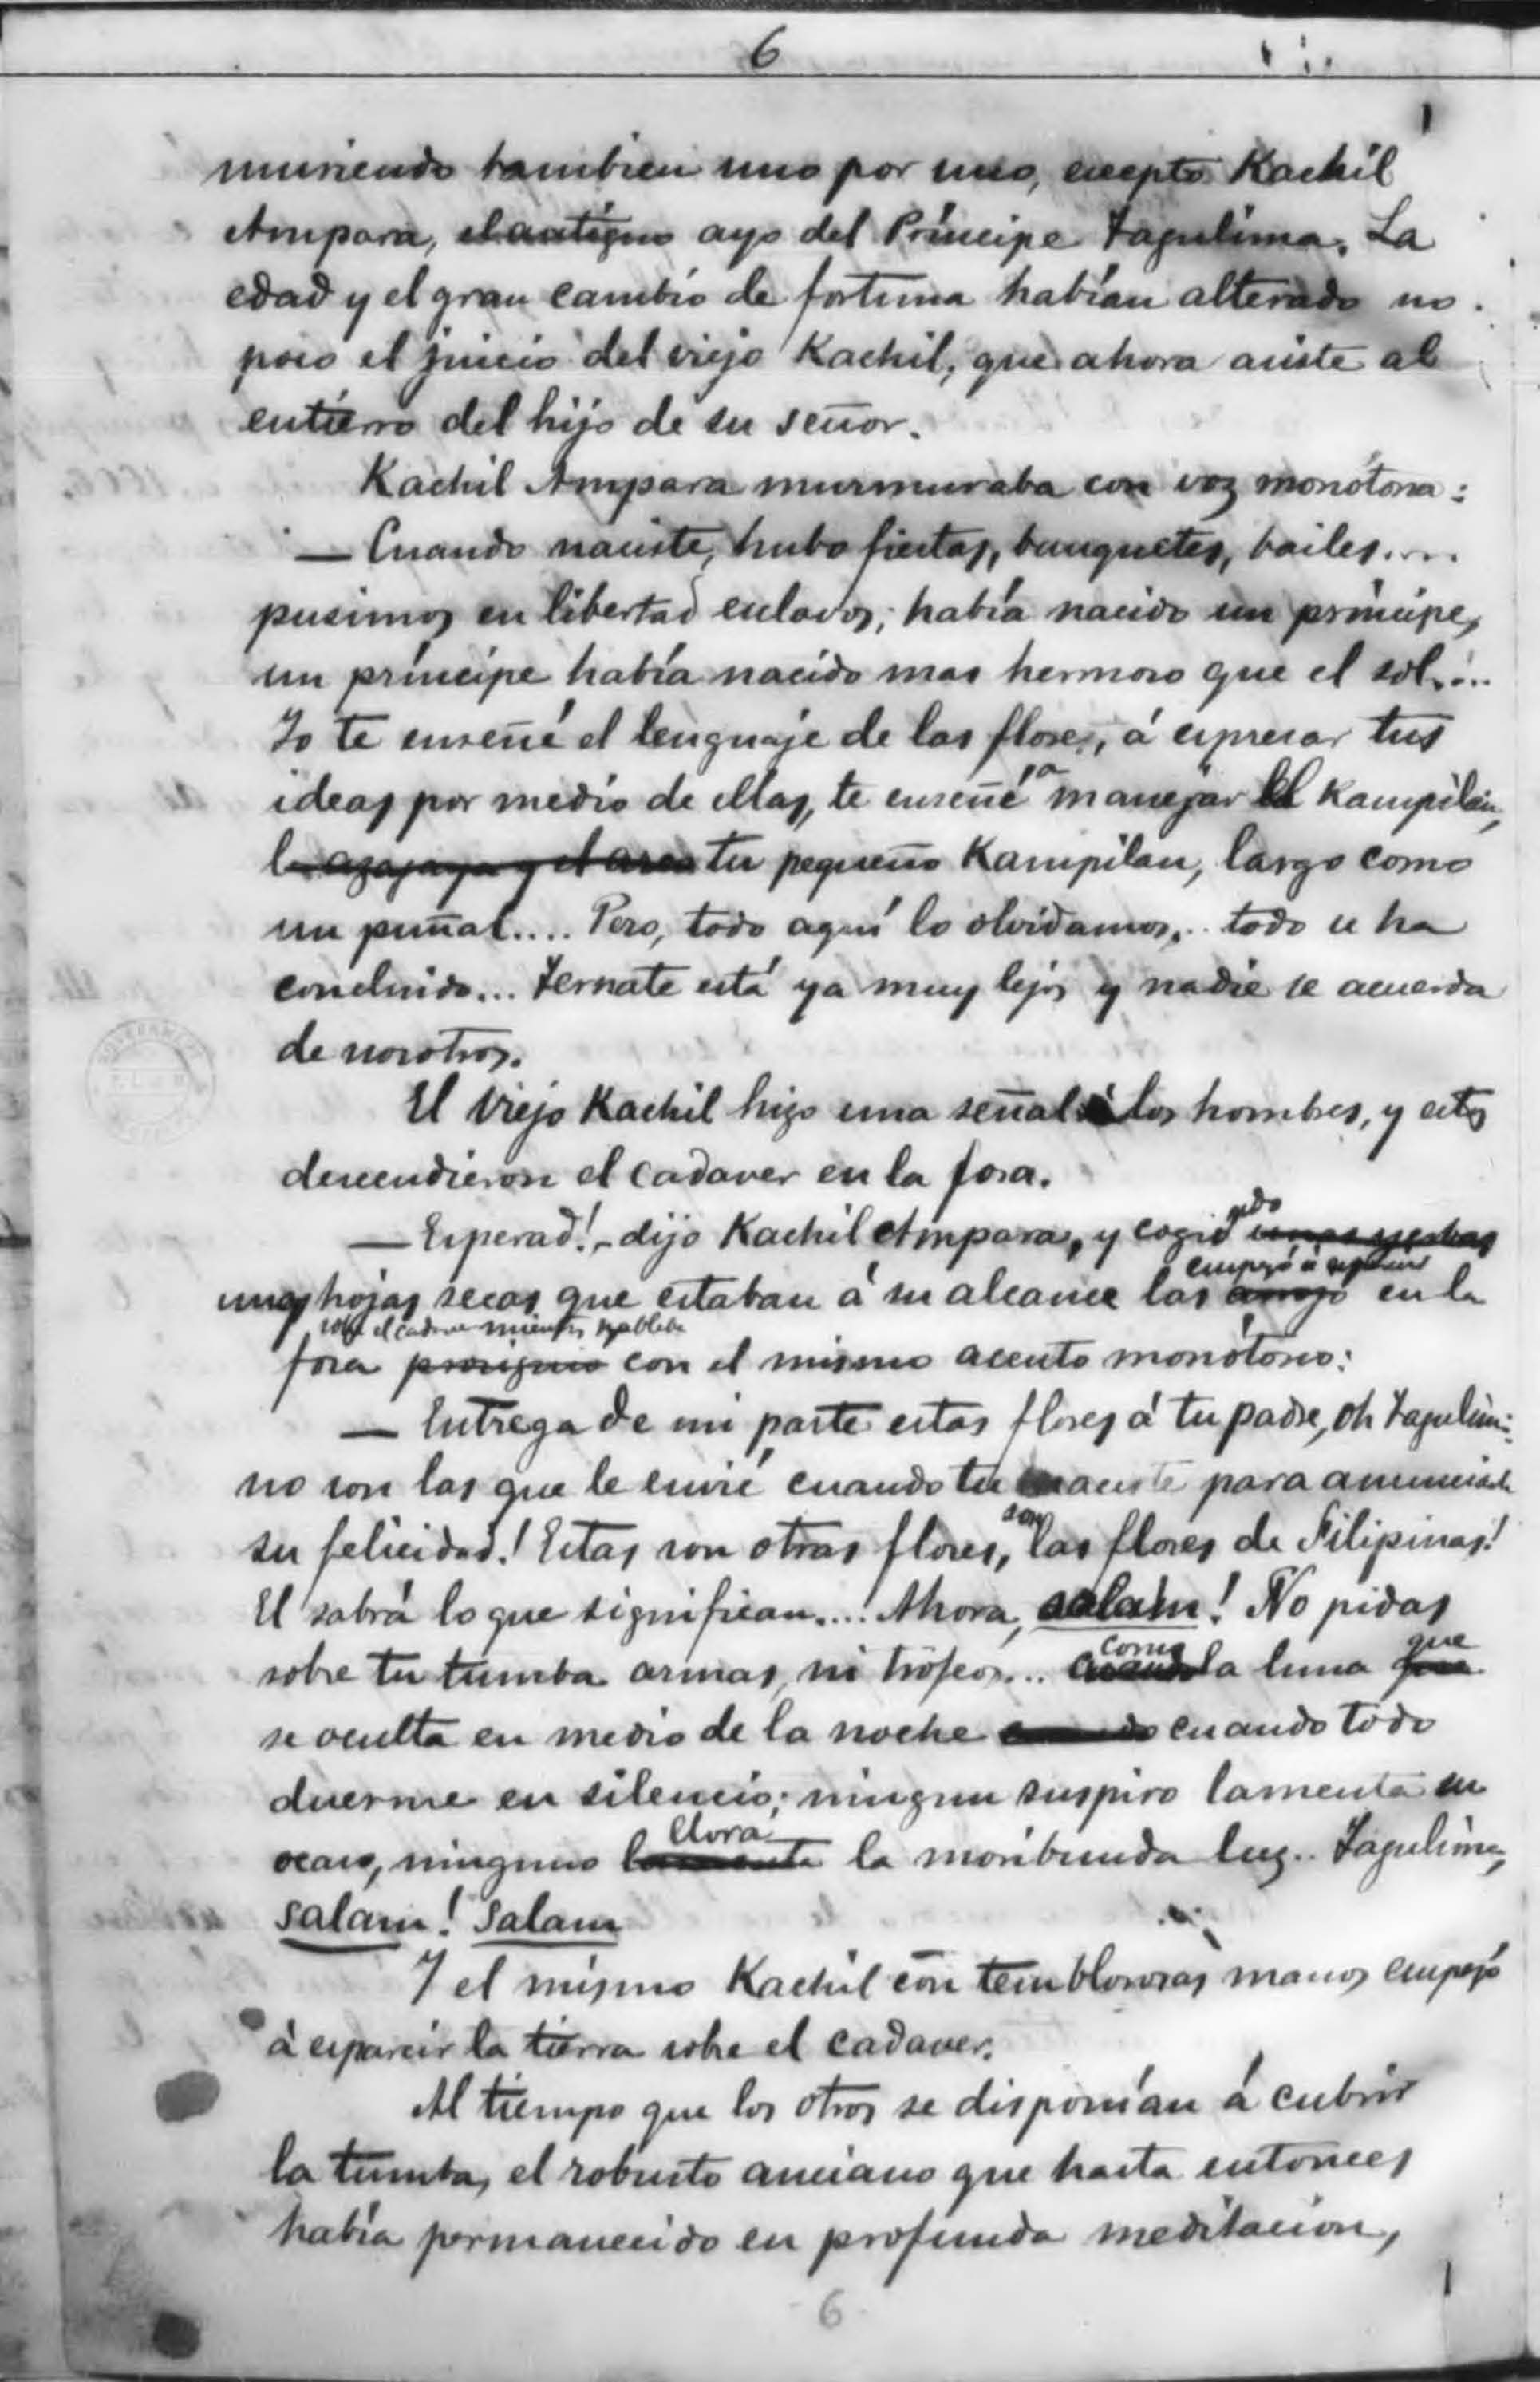 6
muriendo tambien uno por uno, escepto Kachil
Ampara, el antiguo ayo del Príncipe Tagulima. La
edad y el gran cambio de fortuna habían alterado no
poco el juicio del viejo Kachil, que ahora asiste al
entierro del hijo de su señor.
Kachil Ampara murmuraba con voz monótona:
— Cuando naciste, hubo fiestas, banquetes, bailes....
pusimos en libertad esclavos; había nacido un príncipe,
un príncipe había nacido mas hermoso que el sol....
Yo te enseñé el lenguaje de las flores, á espresar tus
ideas por medio de ellas, te enseñé á manejar el Kampilan,
la azagaya y el arco tu pequeño Kampilan, largo como
un puñal.... Pero, todo aquí lo olvidamos... todo se ha
concluido... Ternate está ya muy lejos y nadie se acuerda
de nosotros.
El viejo Kachil hizo una señal á los hombres, y estos
descendieron el cadaver en la fosa.
— Esperad! - dijo Kachil Ampara, y cogiendo
unas hojas secas que estaban á su alcance las empezó á arrojó en la
sobre el cadaver mientras hablaba
fosa prosiguió con el mismo acento monótono:
— Entrega de mi parte estas flores á tu padre, oh Tagulima:
no son las que le envié cuando tu naciste para anunciarle
su felicidad! Estas son otras flores, son las flores de Filipinas!
El sabrá lo que significan....! Ahora, salam! No pidas
sobre tu tumba armas, ni trofeos... como cuando la luna que
se oculta en medio de la noche cuando todo
duerme en silencio; ningun suspiro lamenta su
ocaso, ninguno llora lamenta la moribunda luz.. Tagulima,
salam! salam
Y el mismo Kachil con temblorosas manos empezó
á esparcir la tierra sobre el cadaver.
Al tiempo que los otros se disponían á cubrir
la tumba, el robusto anciano que hasta entonces
había permanecido en profunda meditacion,
6